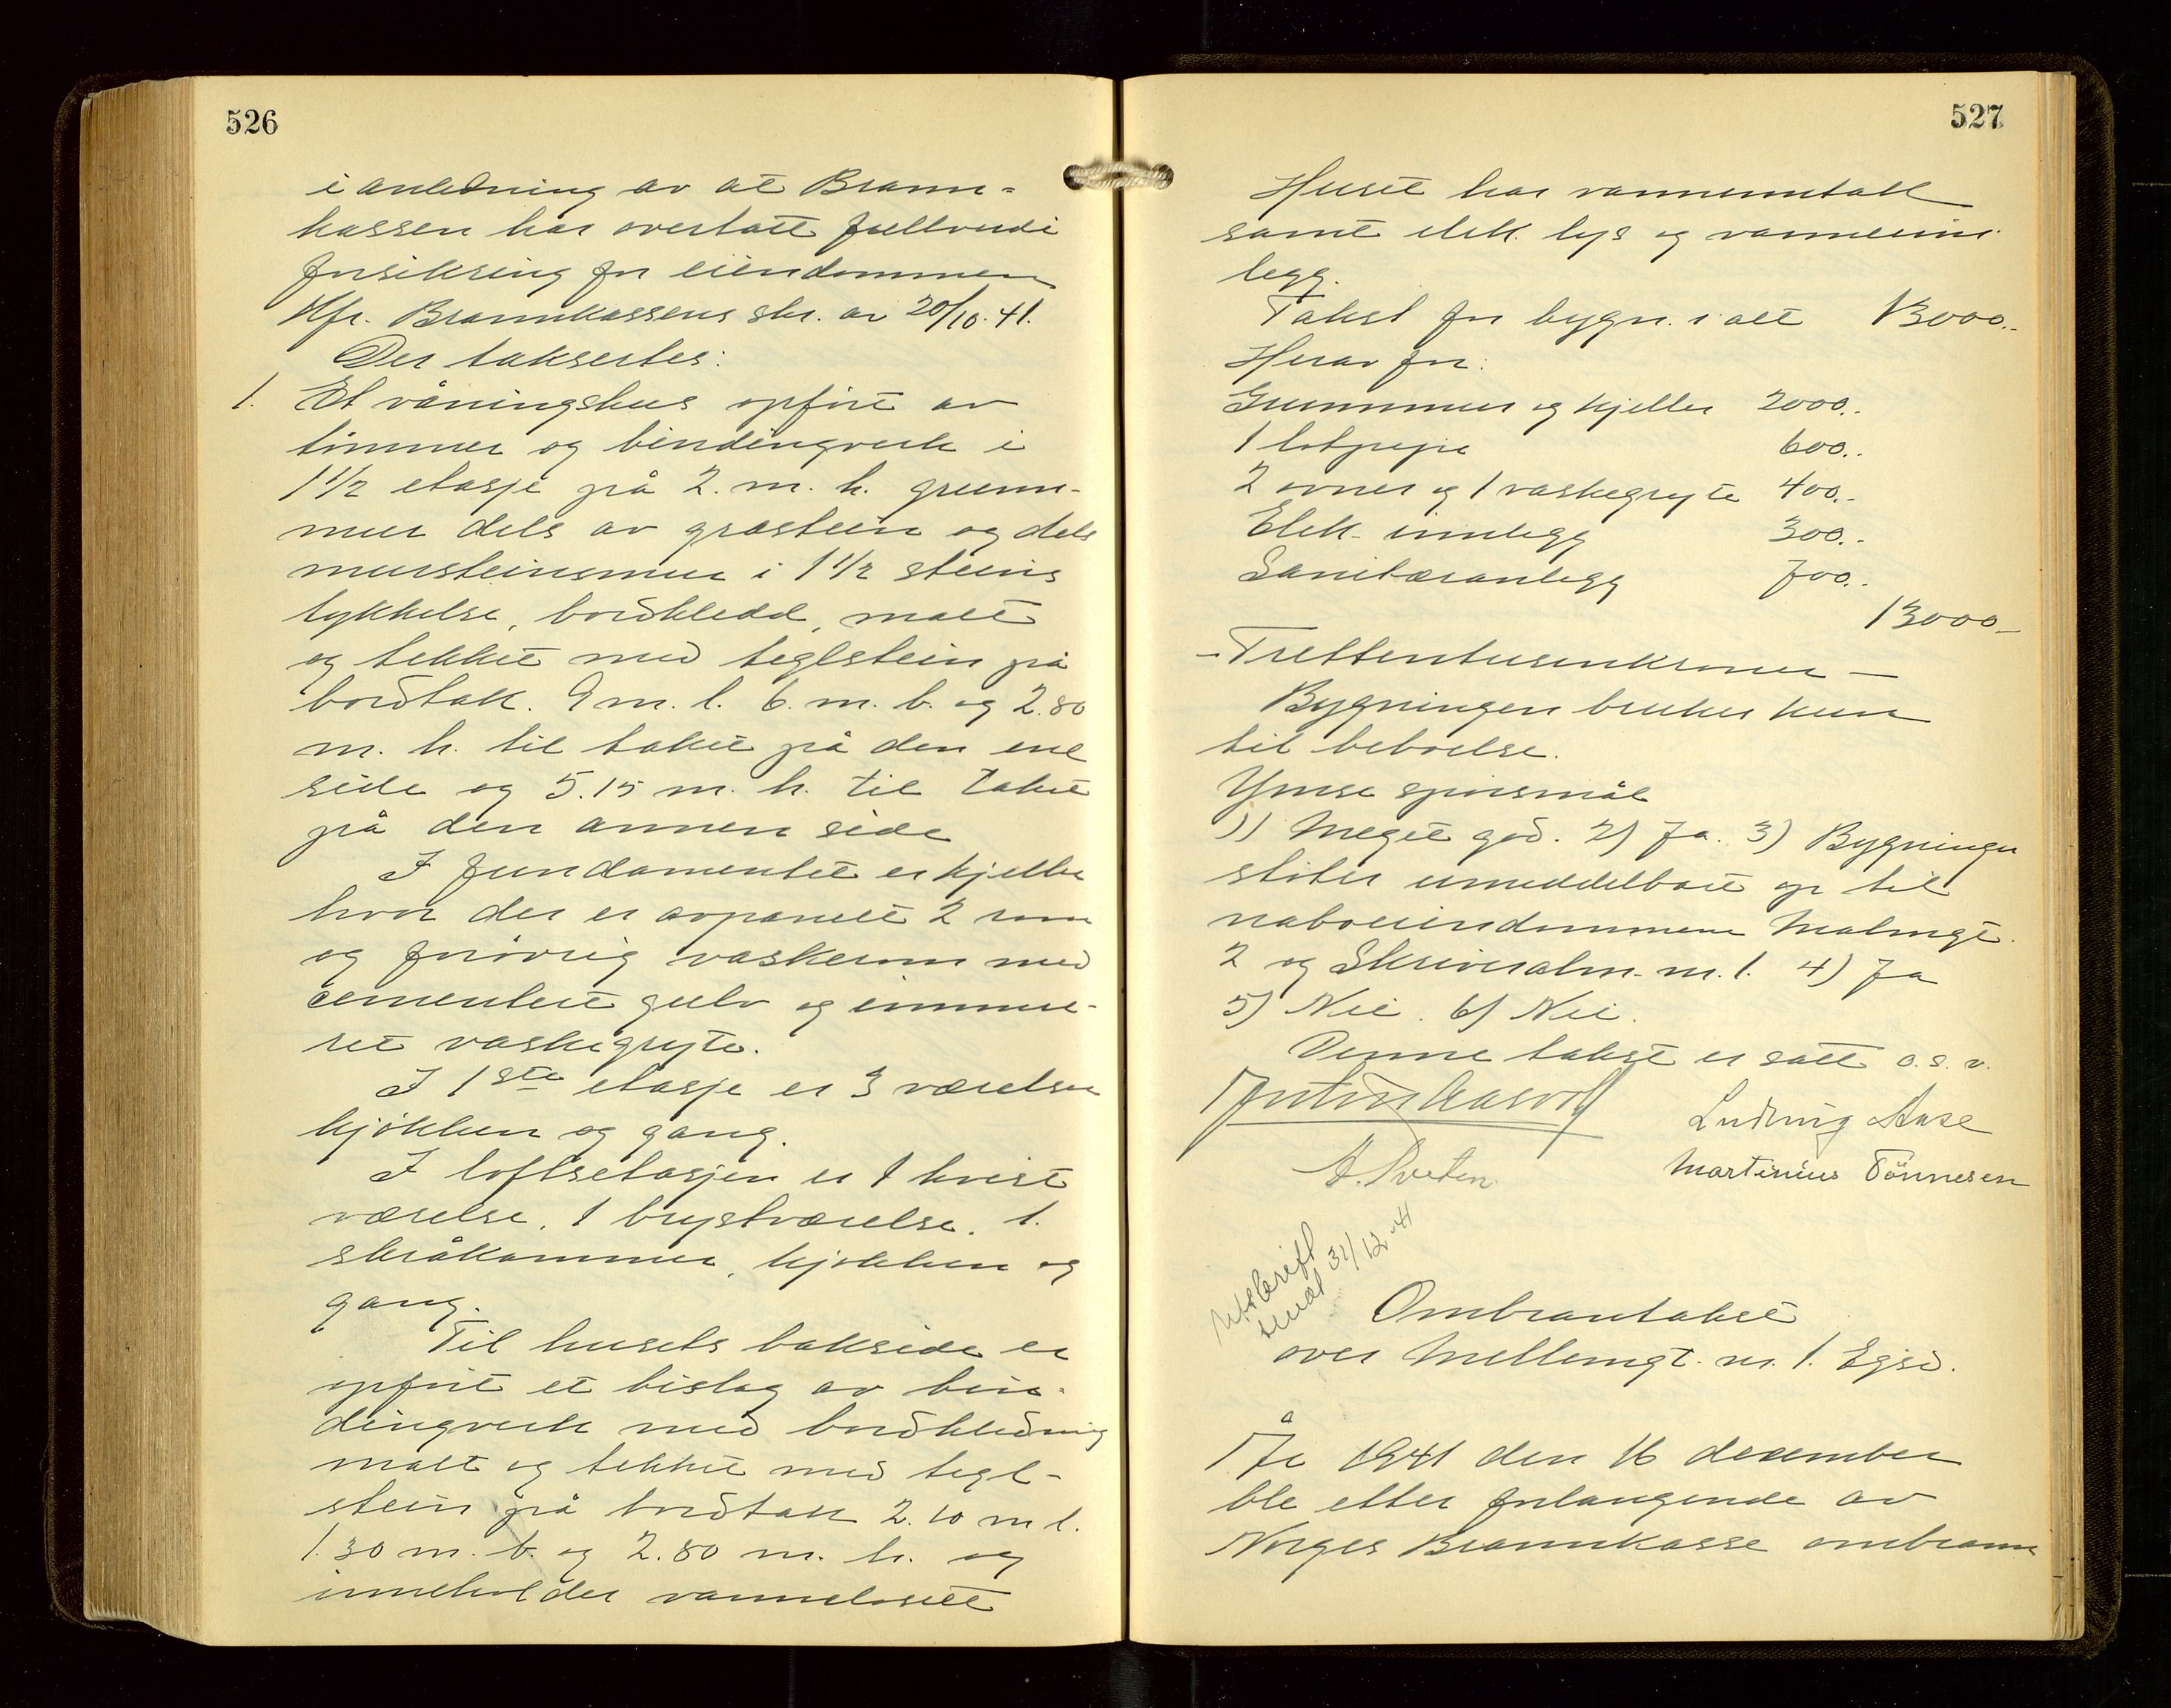 526
i anledning av at Brann-
kassen har overtatt fullverdi
forsikring for eiendommen
Kfr. Brannkassens skr. av 20/10.41.
Der taksertes:
1. Et våningshus opført av
tømmer og bindingverk i
1 1/2 etasje på 2. m. h. grunn-
mur dels av gråstein og dels
mursteinsmur i 1 1/2 steins
tykkelse, bordkledd, malt
og tekket med teglstein på
bordtak. 9 m. l. 6. m. b. og 2.80
m. h. til taket på den ene
side og 5.15 m. h. til taket
på den annen side
I fundamentet er kjeller
hvor der er avpanelt 2 rom
og forøvrig vaskerom med
cementert gulv og innmu-
ret vaskegryte.
I 1ste etasje er 3 værelser
kjøkken og gang.
I loftsetasjen er 1 kvist
værelse, 1 brystværelse. 1.
skråkammer, kjøkken og
gang.
Til husets bakside er
opført et bislag av bin-
dingverk med bordkledning
malt og tekket med tegl-
stein på bordtak 2.10 m l.
1.30 m. b. og 2.80 m. h. og
inneholder vannklosett
527
Huset har vanninntak
samt elek. lys og vanninn-
legg.
Takst for bygn. i alt 13000.-
Herav for:
Grunnmur og kjeller 2000.-
1 lotpipe 600.-
2 ovner og 1 vaskegryte 400.-
Elek. innlegg 300.-
Sanitæranlegg 700.-
13000.-
- Trettentusenkroner -
Bygningen brukes kun
til beboelse.
Ymse spørsmål
1) Meget god. 2) Ja. 3) Bygningen
støter umiddelbart op til
naboeiendommene
2 og Skriveralm. nr. 1. 4) Ja
5) Nei. 6) Nei.
Denne takst er satt o.s.v.
Ludvig Aase
Martinius Tönnesen
Utskrift
sendt 31/12-41
Ombrantakst
over Mellemgt. nr. 1. Egsd.
År 1941 den 16 desember
ble etter forlangende av
Norges Brannkasse ombrann